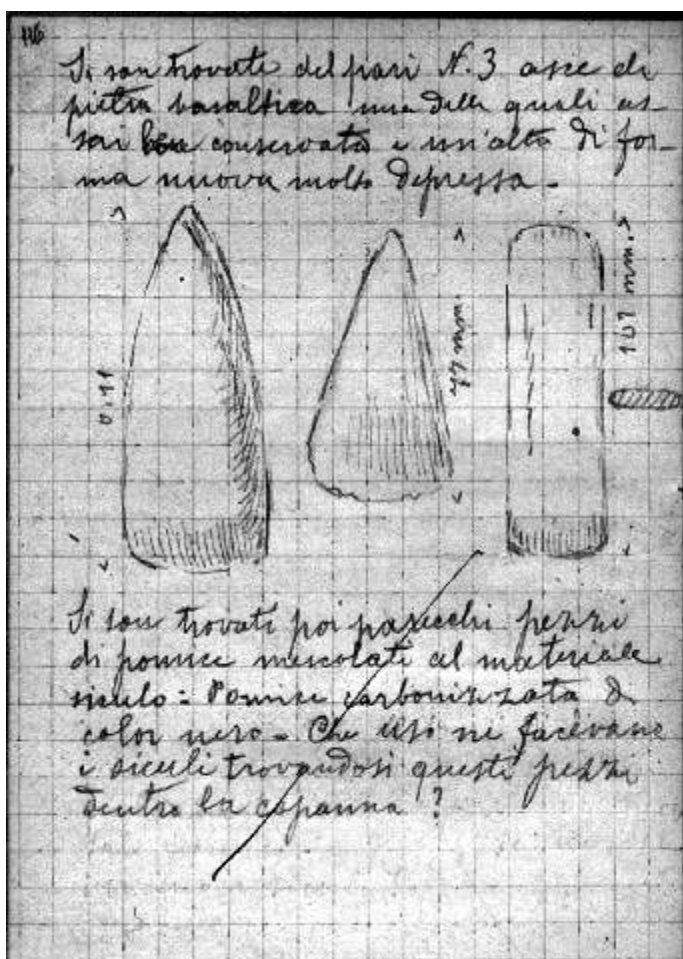 116
Si son trovate del pari N. 3 asce di
pietra basaltica una delle quali as-
sai ben conservata e un'alta di for-
ma nuova molto depressa -
0.11
mm
107 mm.
Si son trovati poi parecchi pezzi
di pomice mescolati al materiale
siculo = Pomice carbonizzata di
color nero - Che uso ne facevano
i siculi trovandosi questi pezzi
dentro la capanna ?